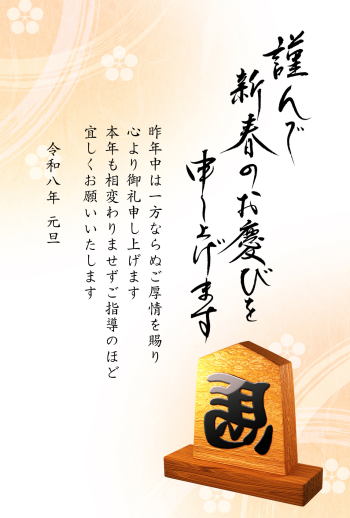 謹んで
新春のお慶びを
申し上げます
昨年中は一方ならぬご厚情を賜り
心より御礼申し上げます
本年も相変わりませずご指導のほど
宜しくお願いいたします
令和八年 元旦